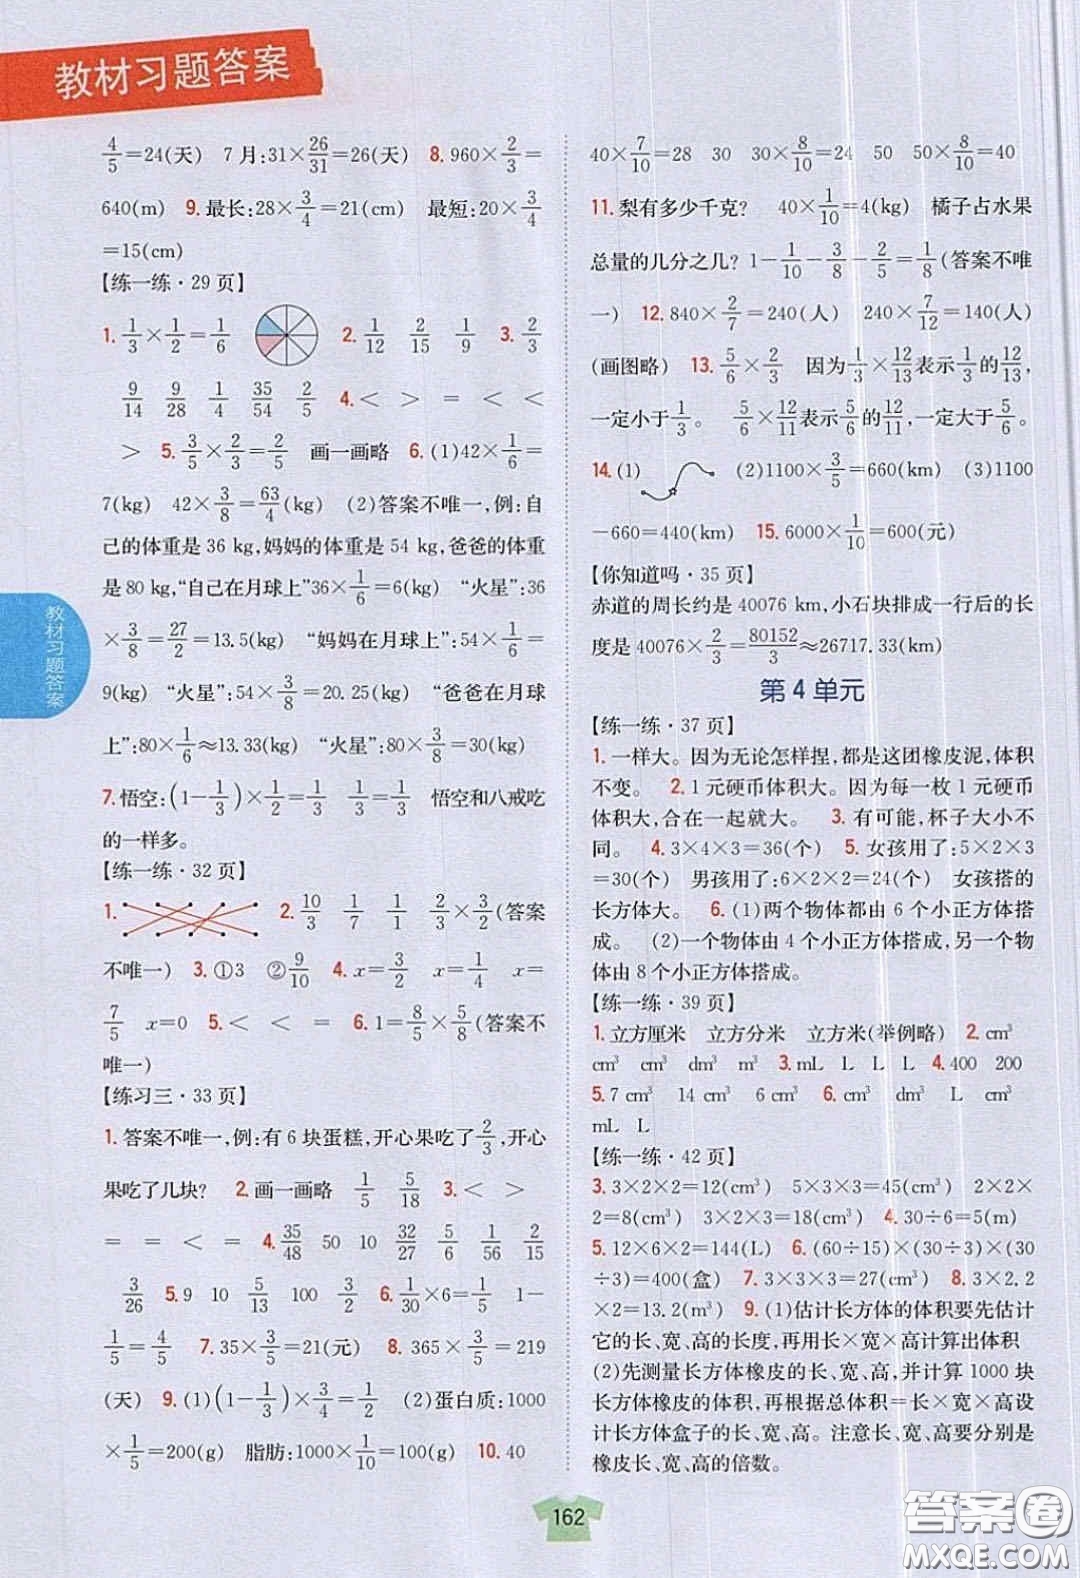 教材习题答案
4/5=24(天) 7月:31×26/31=26(天) 8.960×2/3=
640(m) 9.最长:28×3/4=21(cm) 最短:20×3/4
=15(cm)
【练一练·29页】
1. 1/3×1/2=1/6 2. 1/12 2/15 1/9 3. 2/3
9/14 9/28 1/4 35/54 2/5 4.< > = < <
> 5. 3/5×2/3=2/5 画一画略 6.(1)42×1/6=
7(kg) 42×3/8=63/4(kg) (2)答案不唯一,例:自
己的体重是36 kg,妈妈的体重是54 kg,爸爸的体重
是80 kg,“自己在月球上”36×1/6=6(kg) “火星”:36
×3/8=27/2=13.5(kg) “妈妈在月球上”:54×1/6=
9(kg) “火星”:54×3/8=20.25(kg) “爸爸在月球
上”:80×1/6≈13.33(kg) “火星”:80×3/8=30(kg)
7.悟空:(1-1/3)×1/2=1/3 1/3=1/3 悟空和八戒吃
的一样多。
【练一练·32页】
1. 2. 10/3 1/7 1/1 2/3×3/2(答案
不唯一) 3.①3 ②9/10 4.x=3/2 x=1/4 x=
7/5 x=0 5.< < = 6.1=8/5×5/8(答案不
唯一)
【练习三·33页】
1.答案不唯一,例:有6块蛋糕,开心果吃了2/3,开心
果吃了几块? 2.画一画略 1/5 5/18 3.< >
= = < = 4. 35/48 50 10 32/27 5/6 1/56 2/15
3/26 5.9 10 5/13 100 3/2 6. 1/30×6=1/5 1-
1/5=4/5 7.35×3/5=21(元) 8.365×3/5=219
(天) 9.(1)(1-1/3)×3/4=1/2 (2)蛋白质:1000
×1/5=200(g) 脂肪:1000×1/10=100(g) 10.40
40×7/10=28 30 30×8/10=24 50 50×8/10=40
11.梨有多少千克? 40×1/10=4(kg) 橘子占水果
总量的几分之几?1-1/10-3/8-2/5=1/8(答案不唯
一) 12.840×2/7=240(人) 240×7/12=140(人)
(画图略) 13. 5/6×2/3 因为1/3×12/13表示1/3的12/13,
一定小于1/3。 5/6×12/11表示5/6的12/11,一定大于5/6。
14.(1) (2)1100×3/5=660(km) (3)1100
-660=440(km) 15.6000×1/10=600(元)
【你知道吗·35页】
赤道的周长约是40076 km,小石块排成一行后的长
度是40076×2/3=80152/3≈26717.33(km)
第4单元
【练一练·37页】
1.一样大。因为无论怎样捏,都是这团橡皮泥,体积
不变。 2.1元硬币体积大。因为每一枚1元硬币
体积大,合在一起就大。 3.有可能,杯子大小不
同。 4.3×4×3=36(个) 5.女孩用了:5×2×3
=30(个) 男孩用了:6×2×2=24(个) 女孩搭的
长方体大。 6.(1)两个物体都由6个小正方体搭
成。 (2)一个物体由4个小正方体搭成,另一个物
体由8个小正方体搭成。
【练一练·39页】
1.立方厘米 立方分米 立方米(举例略) 2.cm³
cm³ cm³ dm³ m³ 3.mL L L L 4.400 200
5.7 cm³ 14 cm³ 8 cm³ 6.cm³ dm³ L cm³
mL L
【练一练·42页】
3.3×2×2=12(cm³) 5×3×3=45(cm³) 2×2×
2=8(cm³) 3×2×3=18(cm³) 4.30÷6=5(m)
5.12×6×2=144(L) 6.(60÷15)×(30÷3)×(30
÷3)=400(盒) 7.3×3×3=27(cm³) 8.3×2.2
×2=13.2(m³) 9.(1)估计长方体的体积要先估计
它的长、宽、高的长度,再用长×宽×高计算出体积
(2)先测量长方体橡皮的长、宽、高,并计算1000块
长方体橡皮的体积,再根据总体积=长×宽×高设
计出长方体盒子的长、宽、高。注意长、宽、高要分别是
橡皮长、宽、高的倍数。
教材习题答案
162
答案圈
MXQE.COM